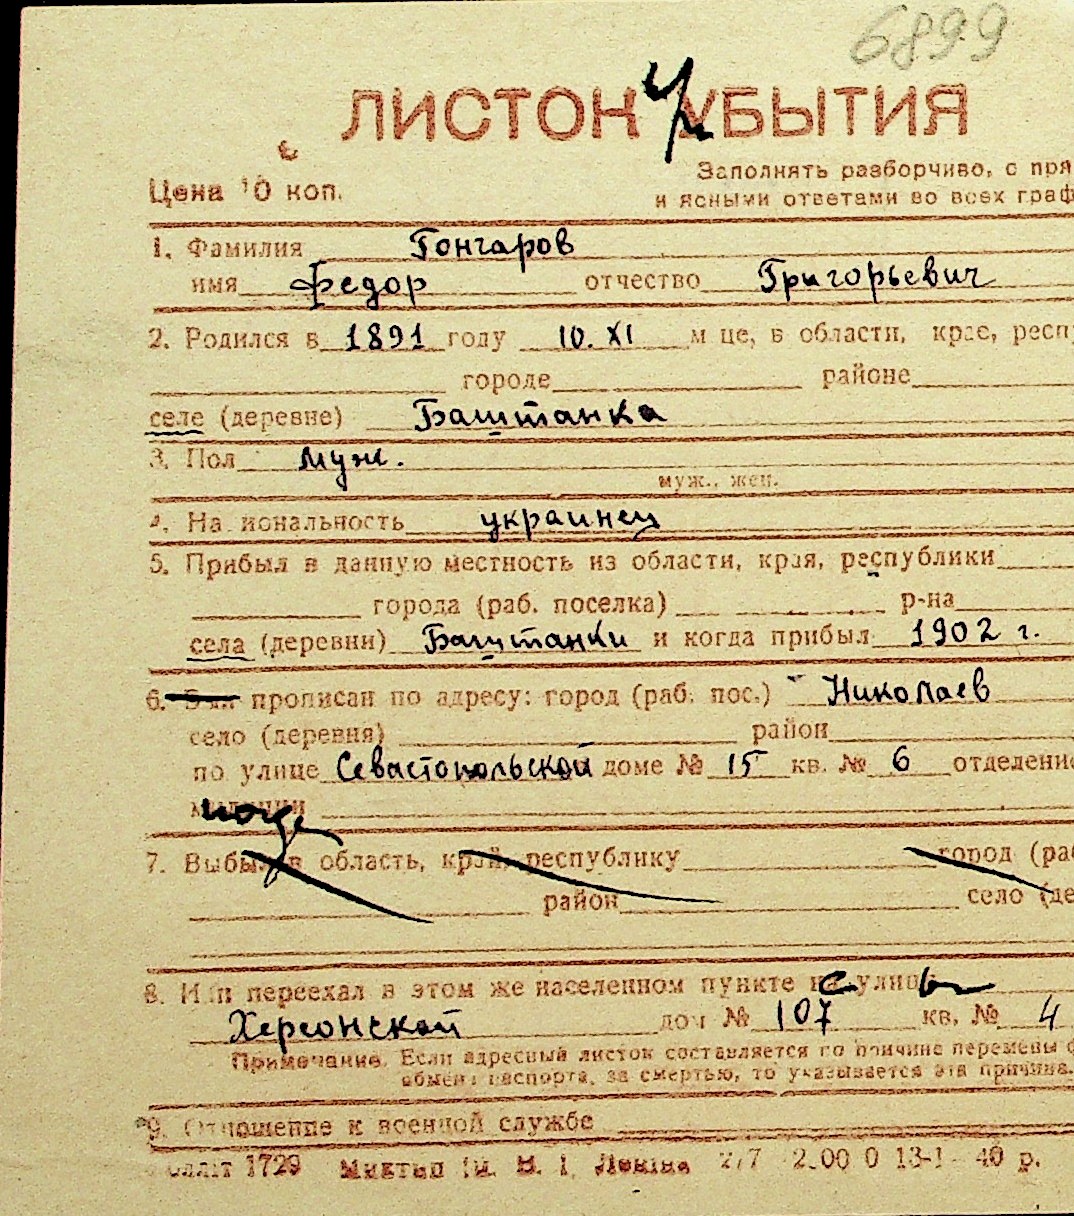 6899
ЛИСТОК УБЫТИЯ
Цена 10 коп.
Заполнять разборчиво, с пря
и ясными ответами во всех граф
1. Фамилия Гончаров
имя Федор отчество Григорьевич
2. Родился в 1891 году 10.XI м це, в области, крае, респу
городе районе
селе (деревне) Баштанка
3. Пол муж.
муж., жен.
4. На иональность украинец
5. Прибыл в данную местность из области, края, республики
города (раб. поселка) р-на
села (деревни) Баштанки и когда прибыл 1902 г.
6. Был прописан по адресу: город (раб. пос.) Николаев
село (деревня) район
по улице Севастопольской доме № 15 кв. № 6 отделение
милиции
7. Выбыл в область, край, республику город (раб
район село (де
8. Или переехал в этом же населенном пункте с улицы
Херсонской дом № 107 кв. № 4
Примечание. Если адресный листок составляется по причине перемены ф
обмена паспорта, за смертью, то указывается эта причина.
9. Отношение к военной службе
1729 Миктип им. В. І. Леніна 13-1 40 р.